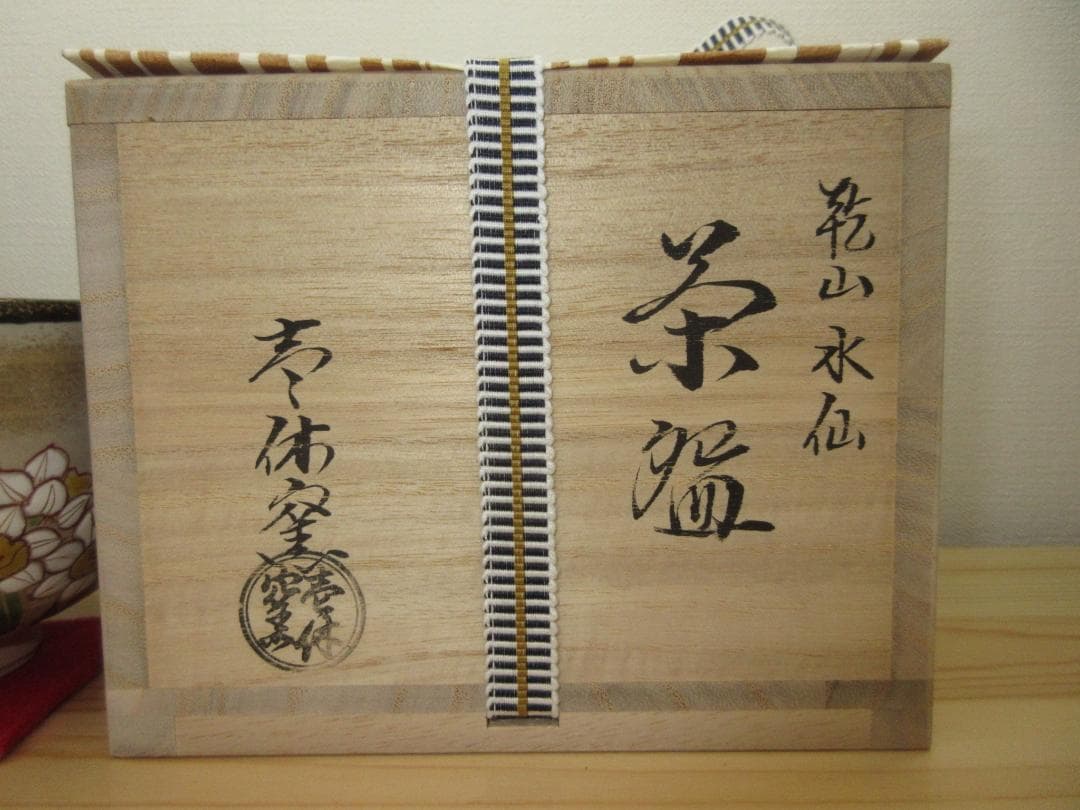 乾山水仙
茶盌
壱休窯
壱休窯